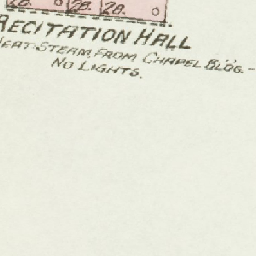 2B. 2B. 2B.
RECITATION HALL
HEAT: STEAM FROM CHAPEL BL'D'G.-
NO LIGHTS.